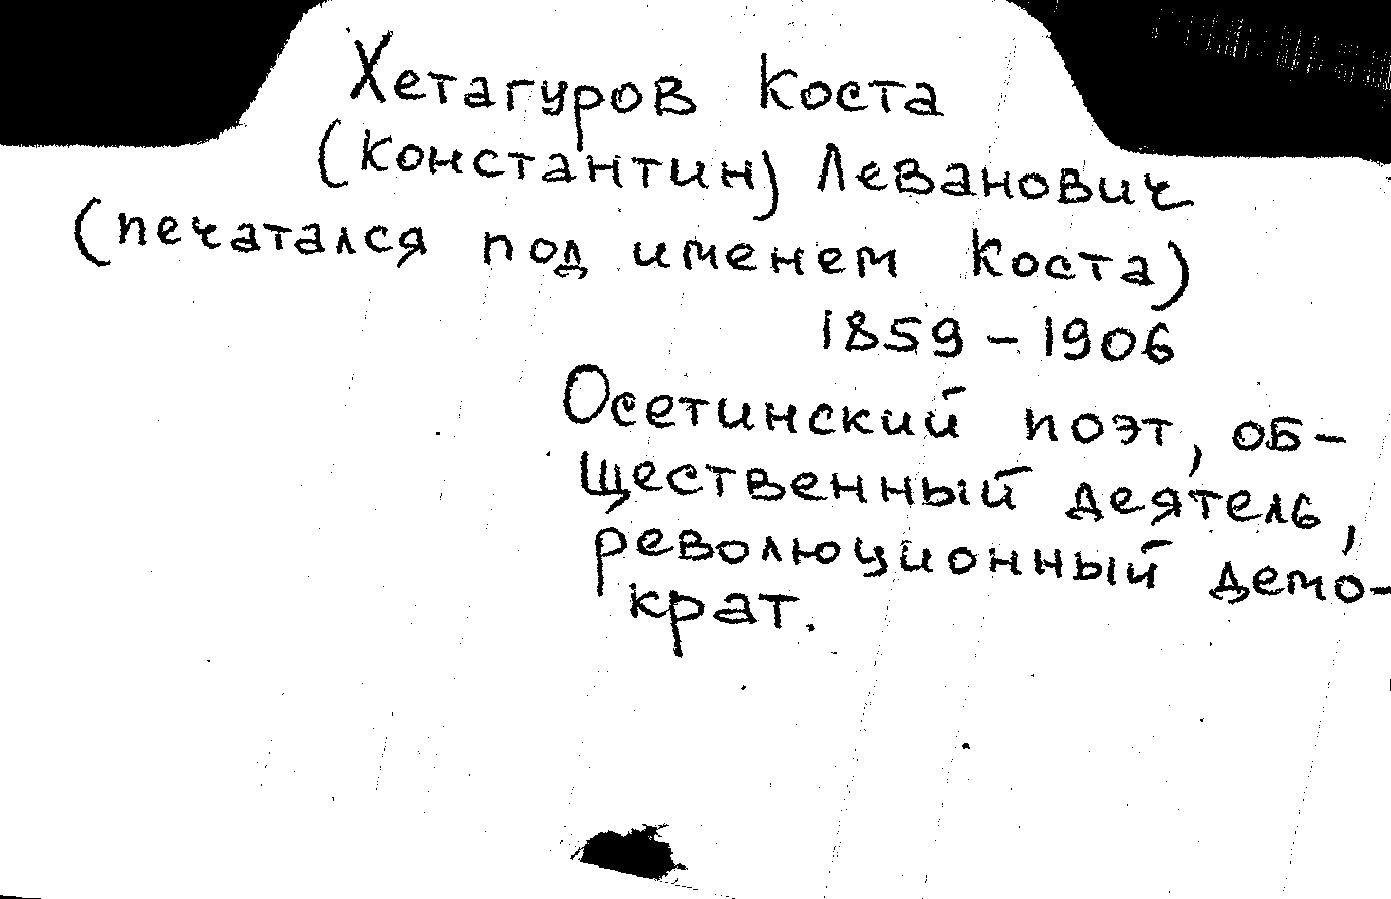 Хетагуров Коста
(Константин) Леванович
(печатался под именем Коста)
1859 – 1906
Осетинский поэт, об-
щественный деятель,
революционный демо-
крат.